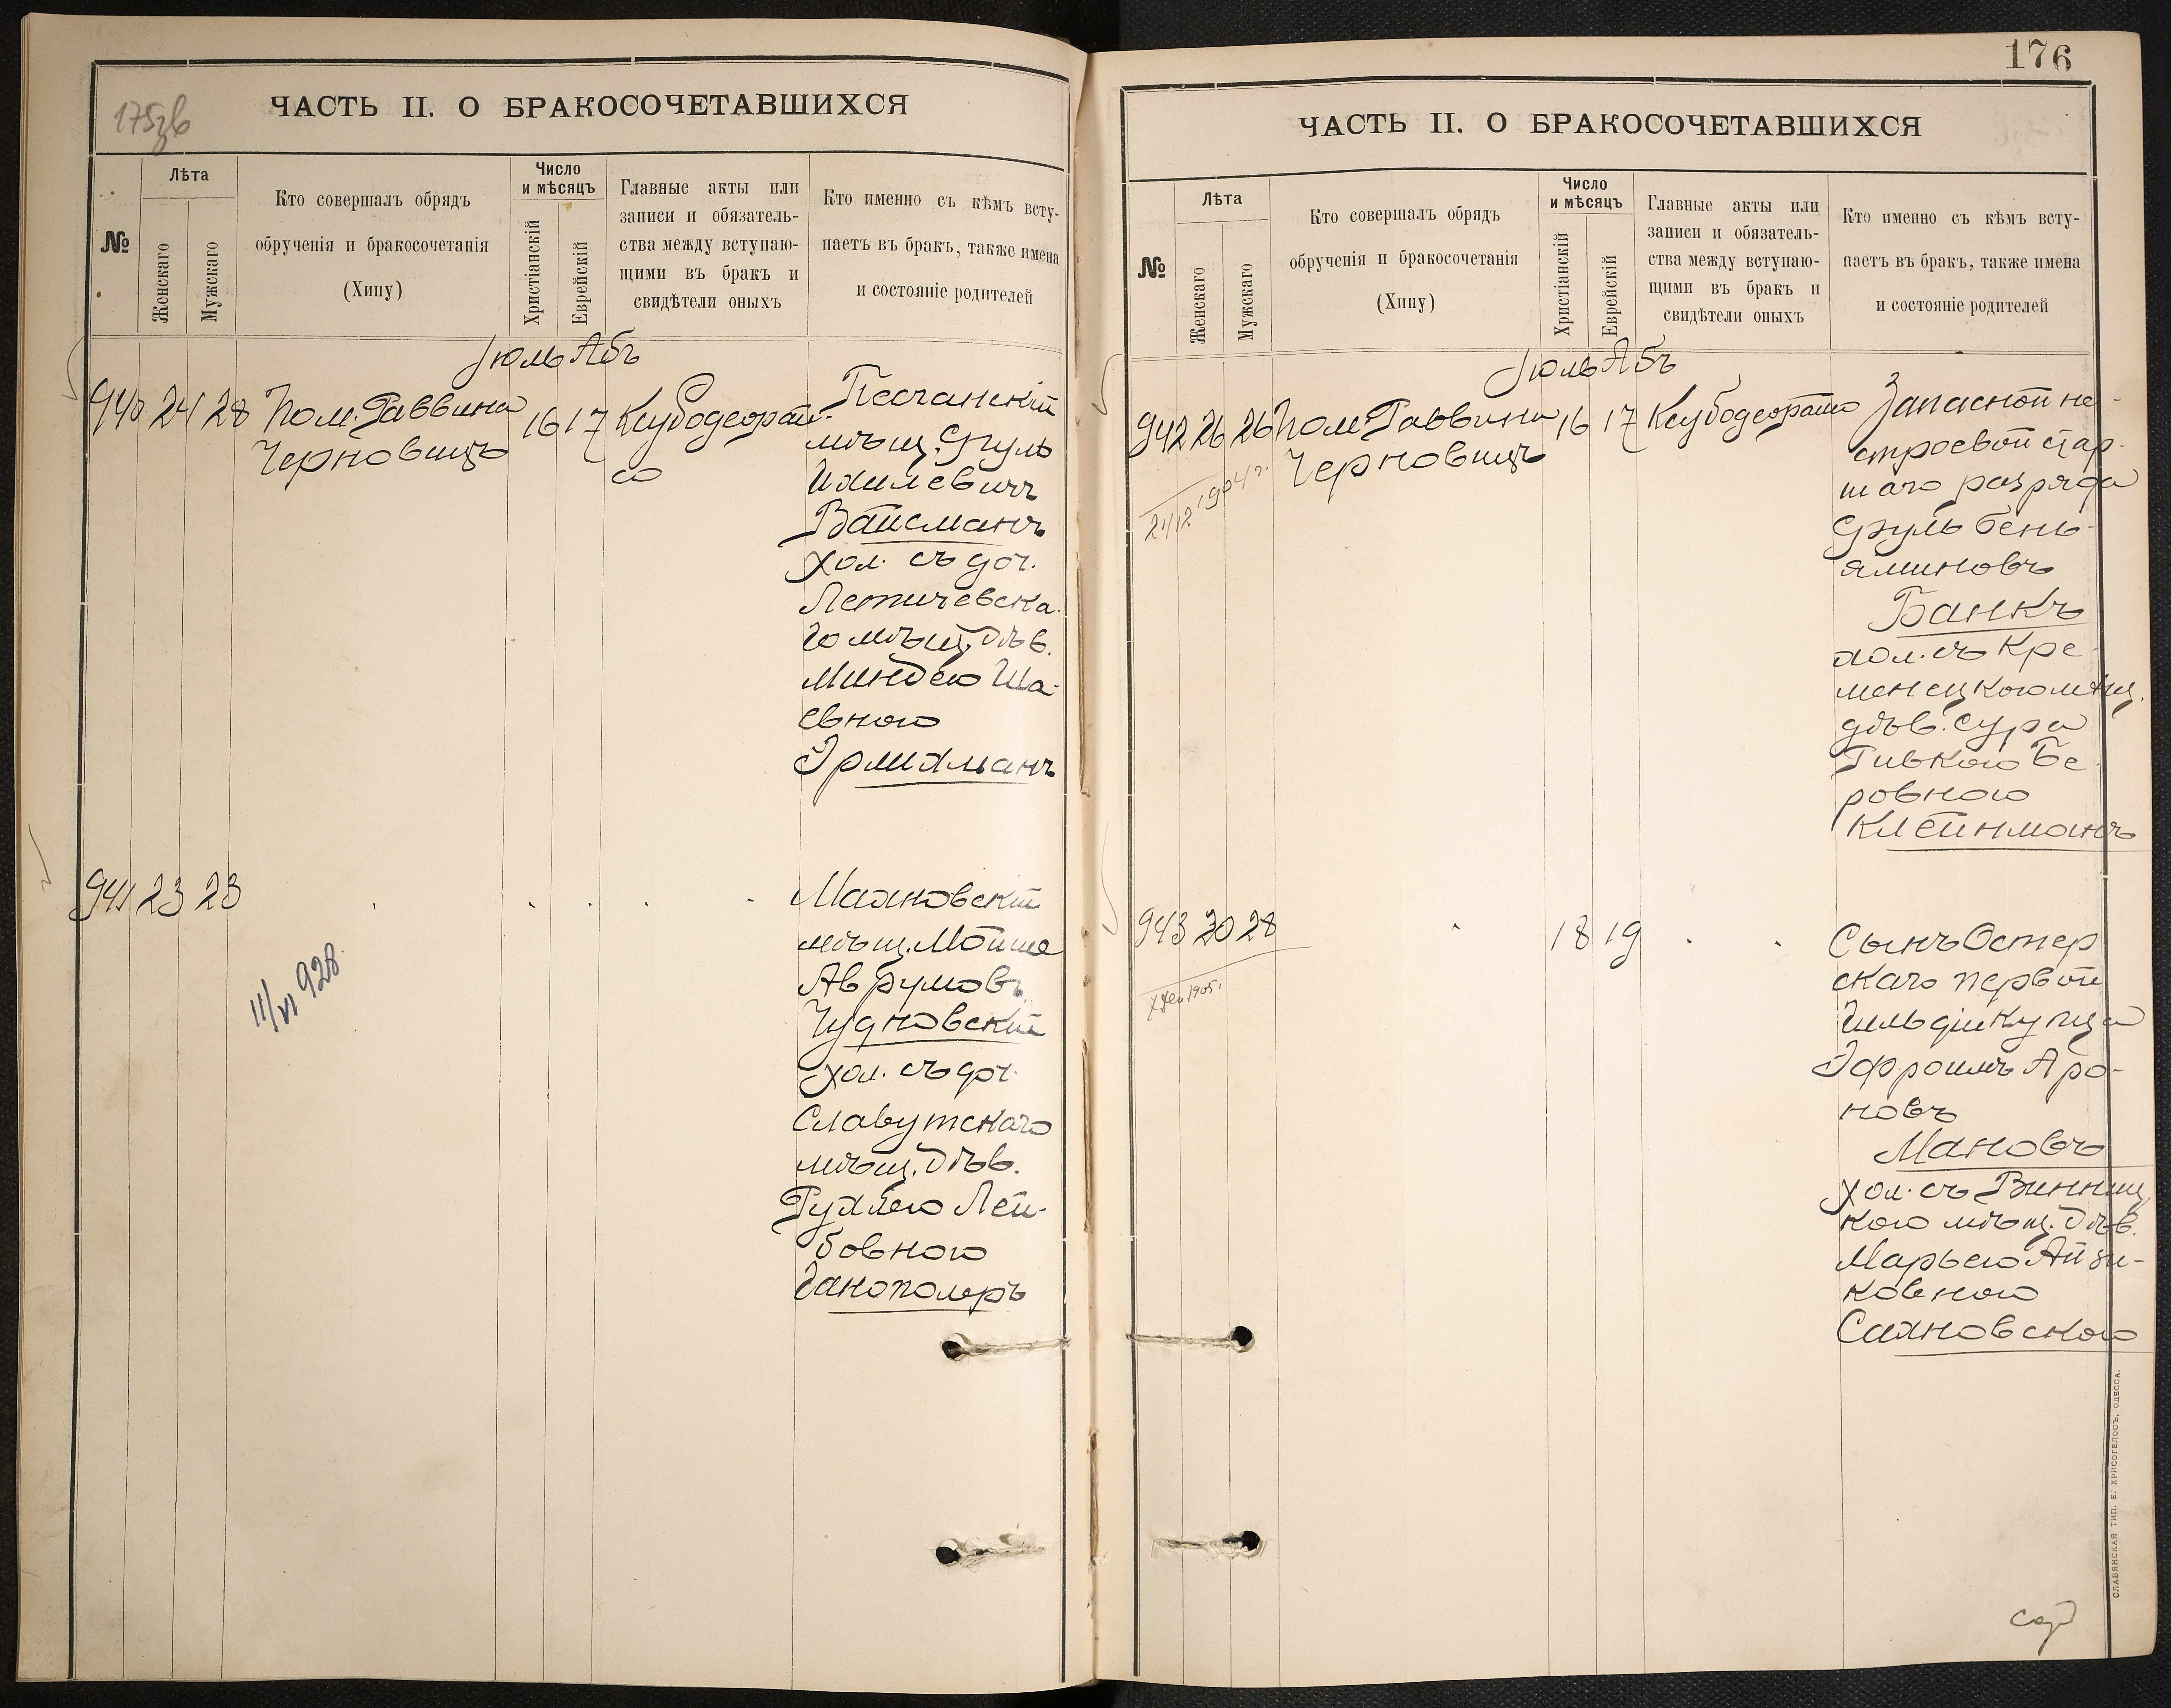 175зв
ЧАСТЬ II. О БРАКОСОЧЕТАВШИХСЯ
№
Лѣта
Женскаго
Мужскаго
Кто совершалъ обрядъ
обрученія и бракосочетанія
(Хипу)
Число
и мѣсяцъ
Христіанскій
Еврейскій
Главные акты или
записи и обязатель-
ства между вступаю-
щими въ бракъ и
свидѣтели оныхъ
Кто именно съ кѣмъ всту-
паетъ въ бракъ, также имена
и состояніе родителей
Іюль Абъ
940 24 28 Пом. Раввина
Черновицъ
16 17
Песчанскій
мѣщ. Сруль
Ихилевичъ
Вайсманъ
хол. съ доч.
Летичевска-
го мѣщ. дѣв.
Миндею Ша-
евною
Эрлихманъ
941 23 23
11/VI 928.
Махновскій
мѣщ. Мойше
Аврумовъ
Чудновскій
хол. съ доч.
Славутскаго
мѣщ. дѣв.
Рухлею Лей-
бовною
Ганополеръ
176
ЧАСТЬ II. О БРАКОСОЧЕТАВШИХСЯ
№
Лѣта
Женскаго
Мужскаго
Кто совершалъ обрядъ
обрученія и бракосочетанія
(Хипу)
Число
и мѣсяцъ
Христіанскій
Еврейскій
Главные акты или
записи и обязатель-
ства между вступаю-
щими въ бракъ и
свидѣтели оныхъ
Кто именно съ кѣмъ всту-
паетъ въ бракъ, также имена
и состояніе родителей
Іюль Абъ
942 26 26 Пом. Раввина
Черновицъ
16 17
1904 г.
Запасной не-
строевой стар-
шаго разряда
Сруль Бень-
яминовъ
Банкъ
хол. съ Кре-
менецкою мѣщ.
дѣв. Сура
Ривкою Бе-
ровною
Клейнманъ
943 30 28
18 19
1905.
Сынъ Остер
скаго первой
гильдіи купца
Эфроимъ Аро-
новъ
Мановъ
хол. съ Винниц
кою мѣщ. дѣв.
Марьею Айзи-
ковною
Сахновскою
СЛАВЯНСКАЯ ТИП. Е. ХРИСОГЕЛОСЪ, ОДЕССА.